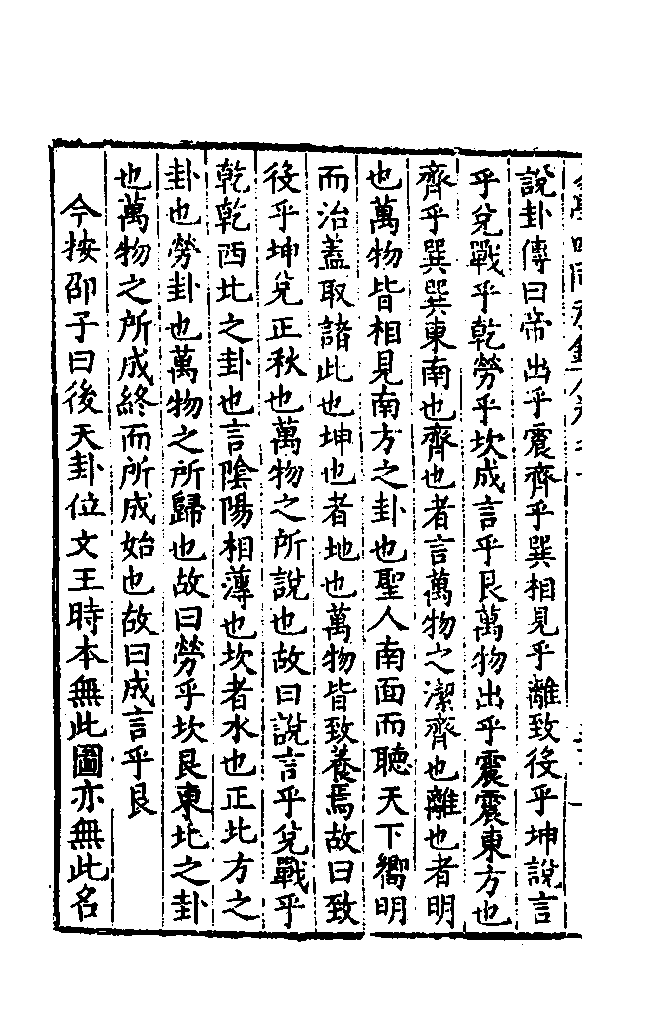 說卦傳曰帝出乎震齊乎巽相見乎離致役乎坤說言
乎兌戰乎乾勞乎坎成言乎艮萬物出乎震震東方也
齊乎巽巽東南也齊也者言萬物之潔齊也離也者明
也萬物皆相見南方之卦也聖人南面而聽天下嚮明
而治蓋取諸此也坤也者地也萬物皆致養焉故曰致
役乎坤兌正秋也萬物之所說也故曰說言乎兌戰乎
乾乾西北之卦也言陰陽相薄也坎者水也正北方之
卦也勞卦也萬物之所歸也故曰勞乎坎艮東北之卦
也萬物之所成終而所成始也故曰成言乎艮
今按邵子曰後天卦位文王時本無此圖亦無此名